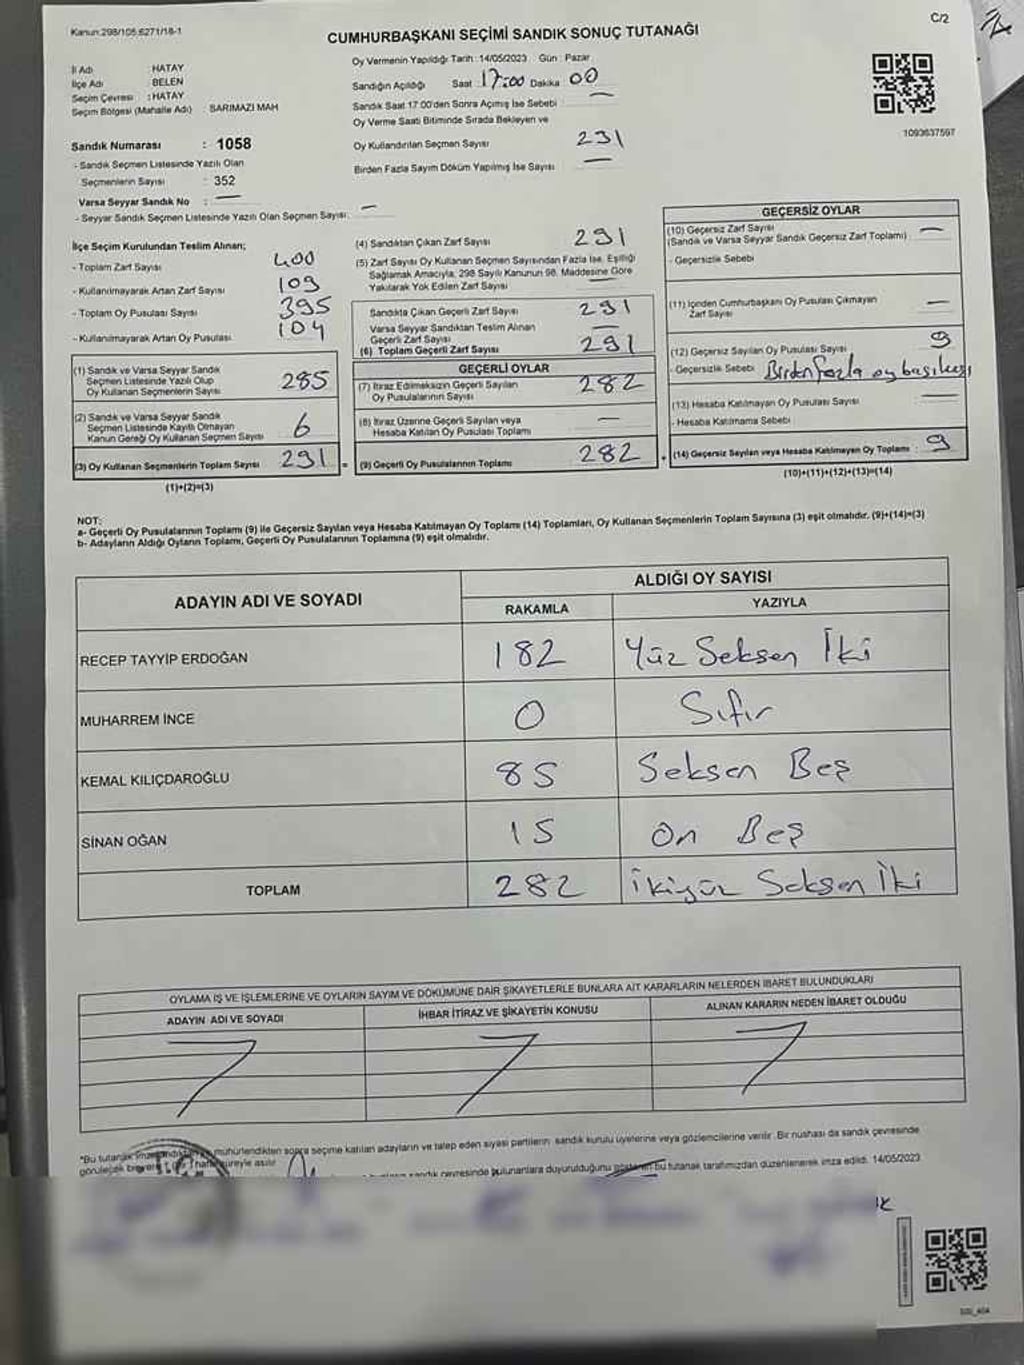 Kanun:298/105,6271/18-1
C/2
CUMHURBAŞKANI SEÇİMİ SANDIK SONUÇ TUTANAĞI
İl Adı : HATAY
İlçe Adı : BELEN
Seçim Çevresi : HATAY
Seçim Bölgesi (Mahalle Adı) : SARIMAZI MAH
Sandık Numarası : 1058
- Sandık Seçmen Listesinde Yazılı Olan
Seçmenlerin Sayısı : 352
Varsa Seyyar Sandık No : —
- Seyyar Sandık Seçmen Listesinde Yazılı Olan Seçmen Sayısı: —
Oy Vermenin Yapıldığı Tarih : 14/05/2023 Gün : Pazar
Sandığın Açıldığı Saat 17:00 Dakika 00
Sandık Saat 17.00'den Sonra Açımış İse Sebebi —
Oy Verme Saati Bitiminde Sırada Bekleyen ve
Oy Kullandırılan Seçmen Sayısı 291
Birden Fazla Sayım Döküm Yapılmış İse Sayısı —
1093637597
İlçe Seçim Kurulundan Teslim Alınan;
- Toplam Zarf Sayısı 400
- Kullanılmayarak Artan Zarf Sayısı 109
- Toplam Oy Pusulası Sayısı 395
- Kullanılmayarak Artan Oy Pusulası 104
(1) Sandık ve Varsa Seyyar Sandık
Seçmen Listesinde Yazılı Olup
Oy Kullanan Seçmenlerin Sayısı 285
(2) Sandık ve Varsa Seyyar Sandık
Seçmen Listesinde Kayıtlı Olmayan
Kanun Gereği Oy Kullanan Seçmen Sayısı 6
(3) Oy Kullanan Seçmenlerin Toplam Sayısı 291 =
(1)+(2)=(3)
(4) Sandıktan Çıkan Zarf Sayısı 291
(5) Zarf Sayısı Oy Kullanan Seçmen Sayısından Fazla İse, Eşitliği
Sağlamak Amacıyla, 298 Sayılı Kanunun 98. Maddesine Göre
Yakılarak Yok Edilen Zarf Sayısı —
Sandıkta Çıkan Geçerli Zarf Sayısı 291
Varsa Seyyar Sandıktan Teslim Alınan
Geçerli Zarf Sayısı —
(6) Toplam Geçerli Zarf Sayısı 291
GEÇERLİ OYLAR
(7) İtiraz Edilmeksizin Geçerli Sayılan
Oy Pusulalarının Sayısı 282
(8) İtiraz Üzerine Geçerli Sayılan veya
Hesaba Katılan Oy Pusulası Toplamı —
(9) Geçerli Oy Pusulalarının Toplamı 282 +
GEÇERSİZ OYLAR
(10) Geçersiz Zarf Sayısı —
(Sandık ve Varsa Seyyar Sandık Geçersiz Zarf Toplamı)
- Geçersizlik Sebebi
(11) İçinden Cumhurbaşkanı Oy Pusulası Çıkmayan
Zarf Sayısı —
(12) Geçersiz Sayılan Oy Pusulası Sayısı 9
- Geçersizlik Sebebi Birden fazla oy
(13) Hesaba Katılmayan Oy Pusulası Sayısı —
- Hesaba Katılmama Sebebi
(14) Geçersiz Sayılan veya Hesaba Katılmayan Oy Toplamı : 9
(10)+(11)+(12)+(13)=(14)
NOT:
a- Geçerli Oy Pusulalarının Toplamı (9) ile Geçersiz Sayılan veya Hesaba Katılmayan Oy Toplamı (14) Toplamları, Oy Kullanan Seçmenlerin Toplam Sayısına (3) eşit olmalıdır. (9)+(14)=(3)
b- Adayların Aldığı Oyların Toplamı, Geçerli Oy Pusulalarının Toplamına (9) eşit olmalıdır.
ADAYIN ADI VE SOYADI
ALDIĞI OY SAYISI
RAKAMLA YAZIYLA
RECEP TAYYİP ERDOĞAN 182 Yüz Seksen İki
MUHARREM İNCE 0 Sıfır
KEMAL KILIÇDAROĞLU 85 Seksen Beş
SİNAN OĞAN 15 On Beş
TOPLAM 282 İkiyüz Seksen İki
OYLAMA İŞ VE İŞLEMLERİNE VE OYLARIN SAYIM VE DÖKÜMÜNE DAİR ŞİKAYETLERLE BUNLARA AİT KARARLARIN NELERDEN İBARET BULUNDUKLARI
ADAYIN ADI VE SOYADI İHBAR İTİRAZ VE ŞİKAYETİN KONUSU ALINAN KARARIN NEDEN İBARET OLDUĞU
*Bu tutanak mühürlendikten sonra seçime katılan adayların ve talep eden siyasi partilerin sandık kurulu üyelerine veya gözlemcilerine verilir. Bir nüshası da sandık çevresinde
görülecek bir yere süreyle asılır
sandık çevresinde bulunanlara duyurulduğunu gösteren bu tutanak tarafımızdan düzenlenerek imza edildi. 14/05/2023